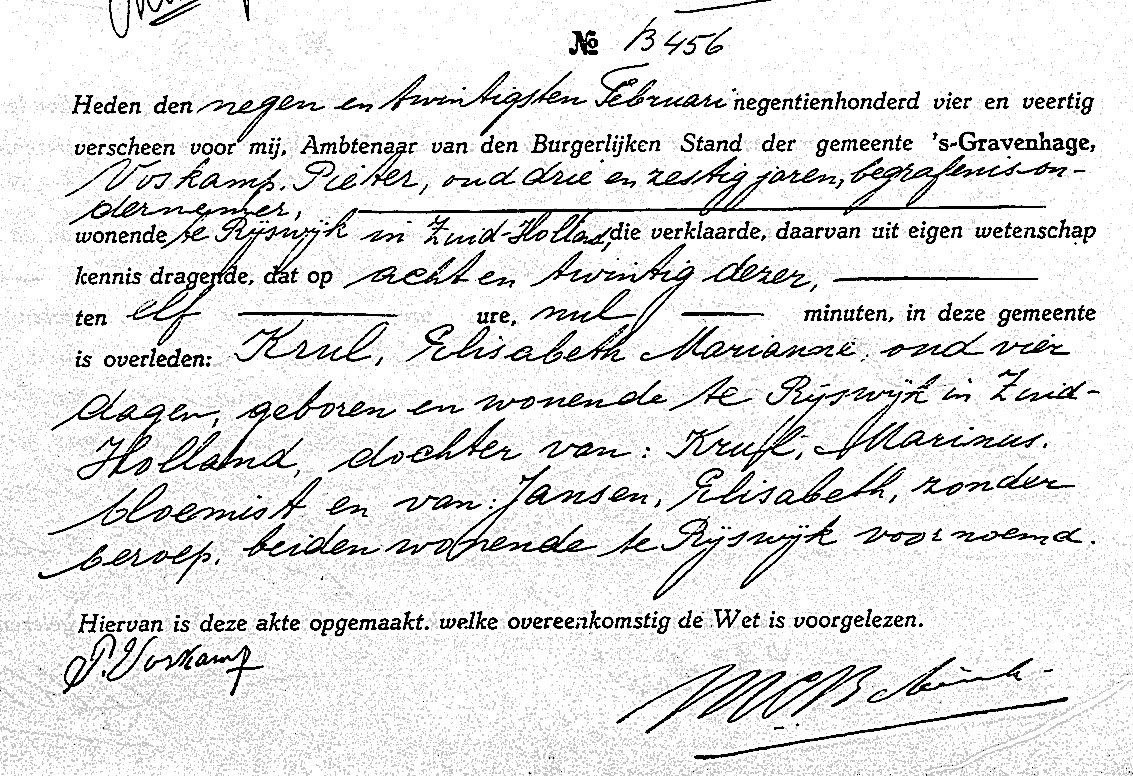 № B 456
Heden den negen en twintigsten Februari negentienhonderd vier en veertig
verscheen voor mij, Ambtenaar van den Burgerlijken Stand der gemeente 's-Gravenhage,
Voskamp, Pieter, oud drie en zestig jaren, begrafenison-
dernemer,
wonende te Rijswijk in Zuid-Holland, die verklaarde, daarvan uit eigen wetenschap
kennis dragende, dat op acht en twintig dezer,
ten elf ure, nul minuten, in deze gemeente
is overleden: Krul, Elisabeth Marianne, oud vier
dagen, geboren en wonende te Rijswijk in Zuid-
Holland, dochter van: Krul, Marinus,
bloemist en van: Jansen, Elisabeth, zonder
beroep, beiden wonende te Rijswijk voornoemd.
Hiervan is deze akte opgemaakt, welke overeenkomstig de Wet is voorgelezen.
P. Voskamp